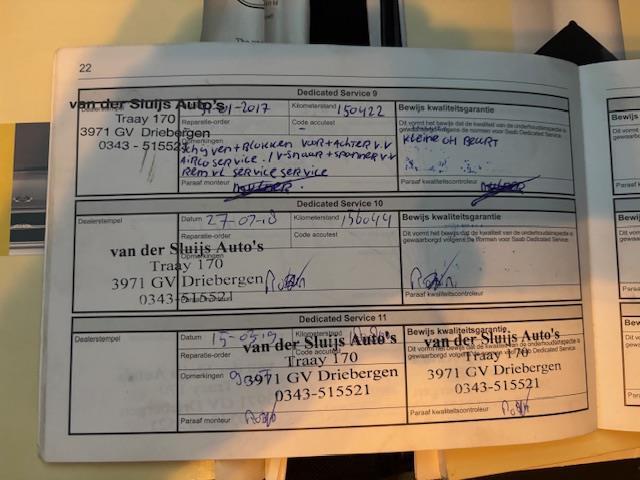 22
Dedicated Service 9
Dealerstempel
van der Sluijs Auto's
Traay 170
3971 GV Driebergen
0343 - 515521
01-2017
Kilometerstand 150422
Reparatie-order
Code accutest
Opmerkingen
Schijven + BLOKKEN VOR + ACHTER V.V
AIRCO SERVICE. / V-SNAAR + SPANNER V.V
REM VL SERVICE SERVICE
Paraaf monteur
Bewijs kwaliteitsgarantie
Dit vormt het bewijs dat de kwaliteit van de onderhoudsinspectie is
gewaarborgd volgens de normen voor Saab Dedicated Service.
Kleine OH BEURT
Paraaf kwaliteitscontroleur
Dedicated Service 10
Dealerstempel
van der Sluijs Auto's
Traay 170
3971 GV Driebergen
0343-515521
Datum 27-07-18
Kilometerstand 156044
Reparatie-order
Code accutest
Opmerkingen
Paraaf monteur
Bewijs kwaliteitsgarantie
Dit vormt het bewijs dat de kwaliteit van de onderhoudsinspectie is
gewaarborgd volgens de normen voor Saab Dedicated Service.
Paraaf kwaliteitscontroleur
Dedicated Service 11
Dealerstempel
Datum 15-
Kilometerstand
Reparatie-order
Code accutest
Opmerkingen
van der Sluijs Auto's
Traay 170
3971 GV Driebergen
0343-515521
Paraaf monteur
Bewijs kwaliteitsgarantie
Dit vormt het bewijs dat de kwaliteit van de onderhoudsinspectie is
gewaarborgd volgens de normen voor Saab Dedicated Service.
van der Sluijs Auto's
Traay 170
3971 GV Driebergen
0343-515521
Paraaf kwaliteitscontroleur